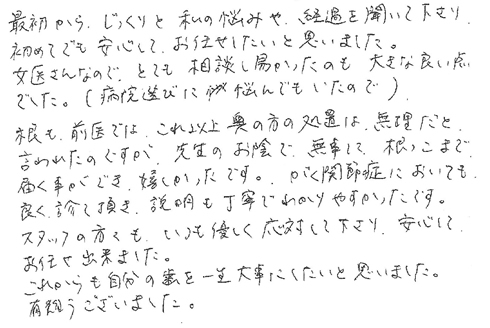 最初から、じっくりと私の悩みや、経過を聞いて下さり、
初めてでも安心して、お任せしたいと思いました。
女医さんなので、とても相談し易かったのも大きな良い点
でした。（病院選びに悩んでもいたので）
根も、前医では、これ以上奥の方の処置は、無理だと、
言われたのですが、先生のお陰で、無事に、根っこまで、
届く事ができ、嬉しかったです。がく関節症においても、
良く診て頂き、説明も丁寧でわかりやすかったです。
スタッフの方々も、いつも優しく応対して下さり、安心して、
お任せ出来ました。
これからも自分の歯を一生大事にしたいと思いました。
有難うございました。